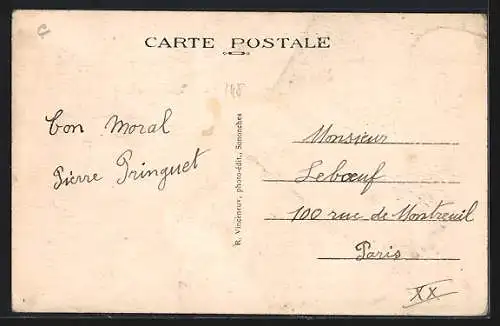 CARTE POSTALE
148
bon moral
Pierre Pringuet
R. Vincineux, photo-édit., Senonches
Monsieur
Lebœuf
100 rue de Montreuil
Paris
XX